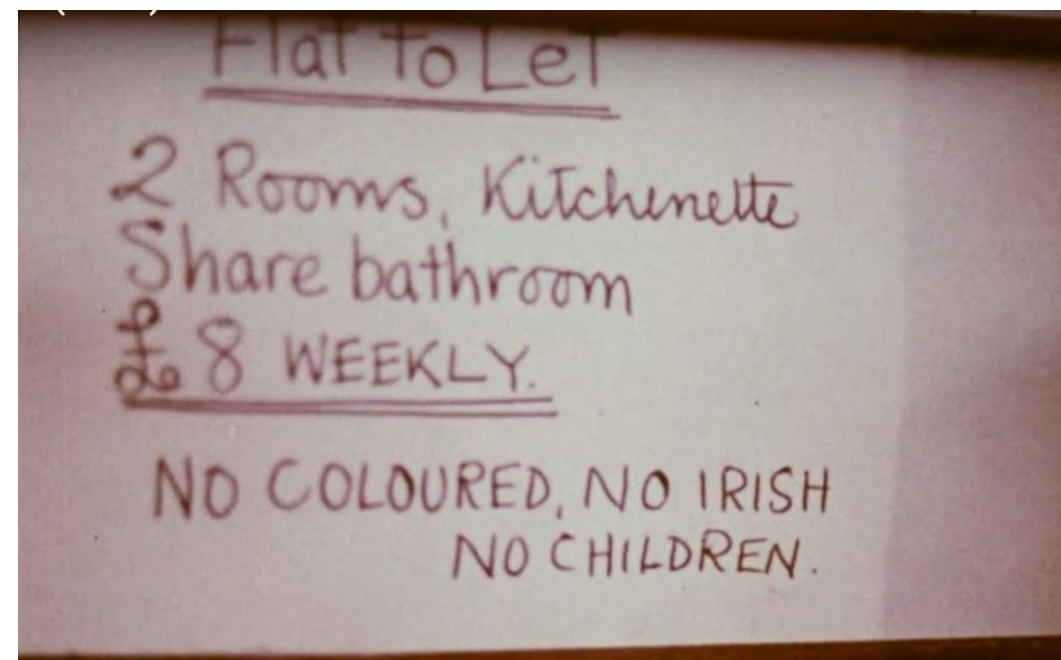 Flat To Let
2 Rooms, Kitchenette
Share bathroom
£8 WEEKLY.
NO COLOURED, NO IRISH
NO CHILDREN.